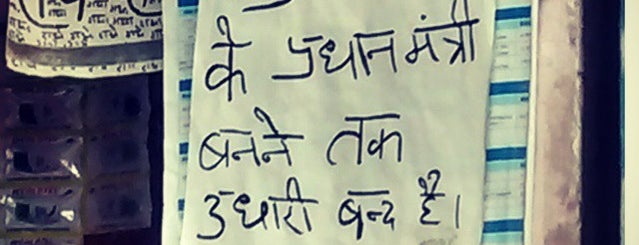 के प्रधानमंत्री
बनने तक
उधारी बन्द है।